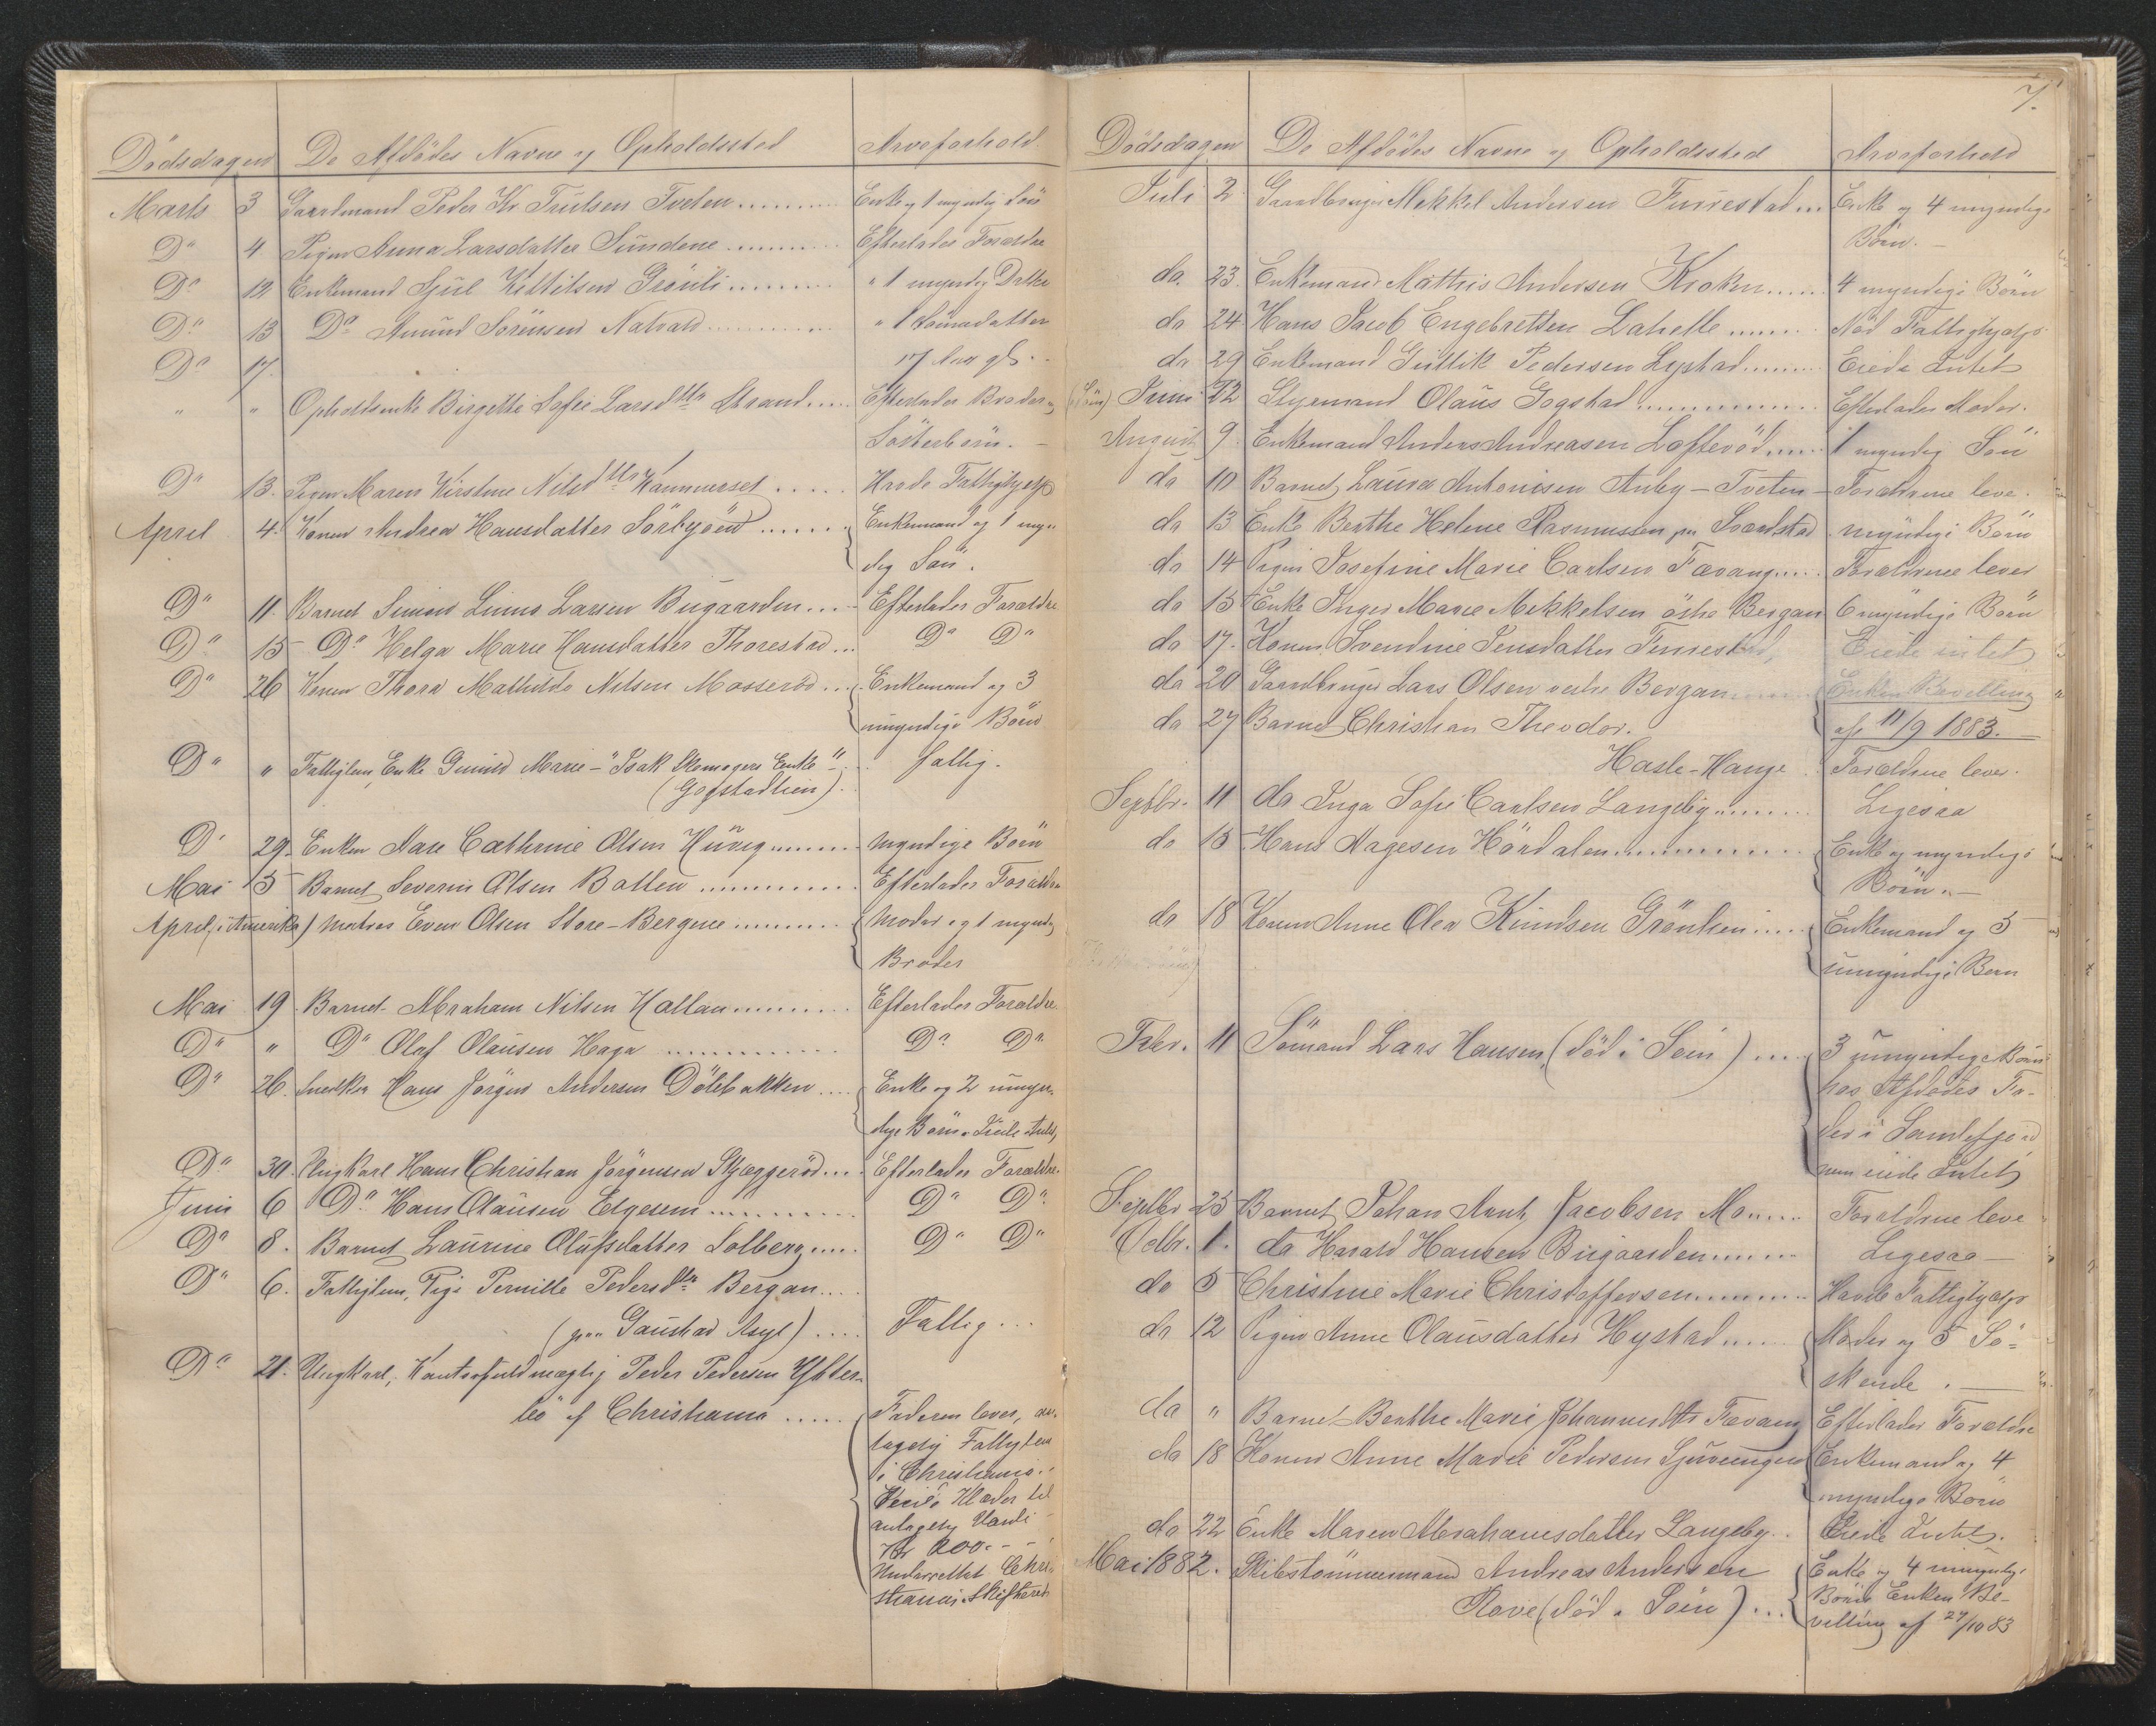 Dödsdagen De Afdödes Navne og Opholdssted Arveforhold
Marts 3 Gaardmand Peder Kr Trulsen Tveten ......... Enke og 1 myndig Sön
Do 4 Pigen Anna Larsdatter Sundene .......... Efterlader Forældre
Do 12 Enkemand Sjul Kittilsen Grönli ........ " 1 myndig Datter
Do 13 Do Amund Sörensen Natvald ............ " 1 Sönnedatter
Do 17. 17 Aar gl. -
" " Opholdsenke Birgitte Sofie Larsdtr Strand .... Efterlader Broder og
Sösterbörn. -
Do 13. Pigen Maren Kirstine Nilsdtr Kammerset ..... Havde Fattighjælp
April 4. Konen Andrea Hansdatter Sörbyöen ....... Enkemand og 1 myn-
dig Sön.
Do 11. Barnet Simon Linus Larsen Bugaarden ... Efterlader Forældre
Do 15 Do Helga Marie Hansdatter Thorestad ... Do Do
Do 26 Konen Thora Mathilde Nilsen Mosserød ... Enkemand og 3
umyndige Börn
Do " Fattiglem, Enke Gunild Marie - "Isak Skomagers Enke" - fattig.
(Gogstadlien).
Do 29. Enken Aase Cathrine Olsen Huvig ........ Myndige Börn
Mai 5 Barnet Severin Olsen Ballen ............ Efterlader Forældre
April (i Amerika) Matros Even Olsen Store-Bergene ......... Moder og 1 myndig
Broder
Mai 19 Barnet Abraham Nilsen Hallan ......... Efterlader Forældre
Do " Do Olaf Olausen Haga ............. Do Do
Do 26. Snedker Hans Jörgen Andersen Dölebakken .... Enke og 2 umyn-
dige Börn. Eiede Intet
Do 30. Ungkarl Hans Christian Jörgensen Skjæggeröd .... Efterlader Forældre.
Juni 6 Do Hans Olausen Elgesem ........... Do Do
Do 8. Barnet Laurine Olufsdatter Solberg ..... Do Do
Do 6. Fattiglem, Pige Pernille Pedersdtr Bergan ....
(paa Gaustad Asyl) .... Fattig ...
Do 21. Ungkarl, Kontorfuldmægtig Peder Pedersen Ytter-
bö af Christiania ..... Faderen lever, an-
tagelig Fattiglem
i Christiania.
Eiede Klæder til
antagelig Værdi
Kr 200. - -
Underrettet Chri-
stiania Skifteret
7.
Dödsdagen De Afdödes Navne og Opholdssted Arveforhold
Juli 2 Gaardbruger Mikkel Andersen Furrestad ... Enke og 4 myndige
Börn. -
do. 23. Enkemand Mathis Andersen Kroken ...... 4 myndige Börn
do 24 Hans Jacob Engebretsen Lahelle ....... Nöd Fattighjælp
do 29 Enkemand Gullik Pedersen Lystad ........ Eiede Intet
Juni 22 Styrmand Olaus Gogstad ............... Efterlader Moder.
August 9. Enkemand Anders Andreasen Lofteröd ..... 1 myndig Sön
do 10 Barnet Laura Antonisen Auby - Tveten - Forældrene leve.
do 13 Enke Berthe Helene Rasmussen paa Svendstad myndige Börn
do 14 Pigen Josefine Marie Carlsen Fævang ..... Forældrene lever
do 15 Enke Inger Marie Mikkelsen östre Bergan 6 myndige Börn
do 17. Konen Svendine Jensdatter Furrestad, Eiede intet
do 20 Gaardbruger Lars Olsen vestre Bergan ...... Enken Bevilling
af 11/9 1883. -
do 27 Barnet Christian Theodor.
Hasle-Hauge Forældrene lever.
Septbr. 11 do Inga Sofie Carlsen Langeby ......... Ligesaa
do 15 Hans Aagesen Hördalen ............... Enke og myndige
Börn. -
do 18 Konen Anne Olea Knudsen Grönlien ..... Enkemand og 5
umyndige Börn
Febr. 11 Sömand Lars Hansen, (död i Söen) .... 3 umyndige Börn
hos Afdödes Fa-
der i Sandefjord
som eiede Intet
Septbr 25 Barnet Johan Arnt Jacobsen Mo ..... Forældrene leve
Octbr. 1. do Harald Hansen Bugaarden ....... Ligesaa -
do 5 Christine Marie Christoffersen ........... Havde Fattighjælp
do 12 Pigen Anne Olausdatter Hystad ..... Moder og 5 Sö-
skende. -
do " Barnet Berthe Marie Johannesdtr Fævang Efterlader Forældre
do 18 Konen Anne Marie Pedersen Sjuveungen Enkemand og 4
myndige Börn
do 22 Enke Maren Abrahamsdatter Langeby .. Eiede Intet.
Mai 1882. Skibstömmermand Andreas Andersen Enke og 4 umyndige
Rove (död i Söen) ... Börn Enken Be-
villing af 27/10 83